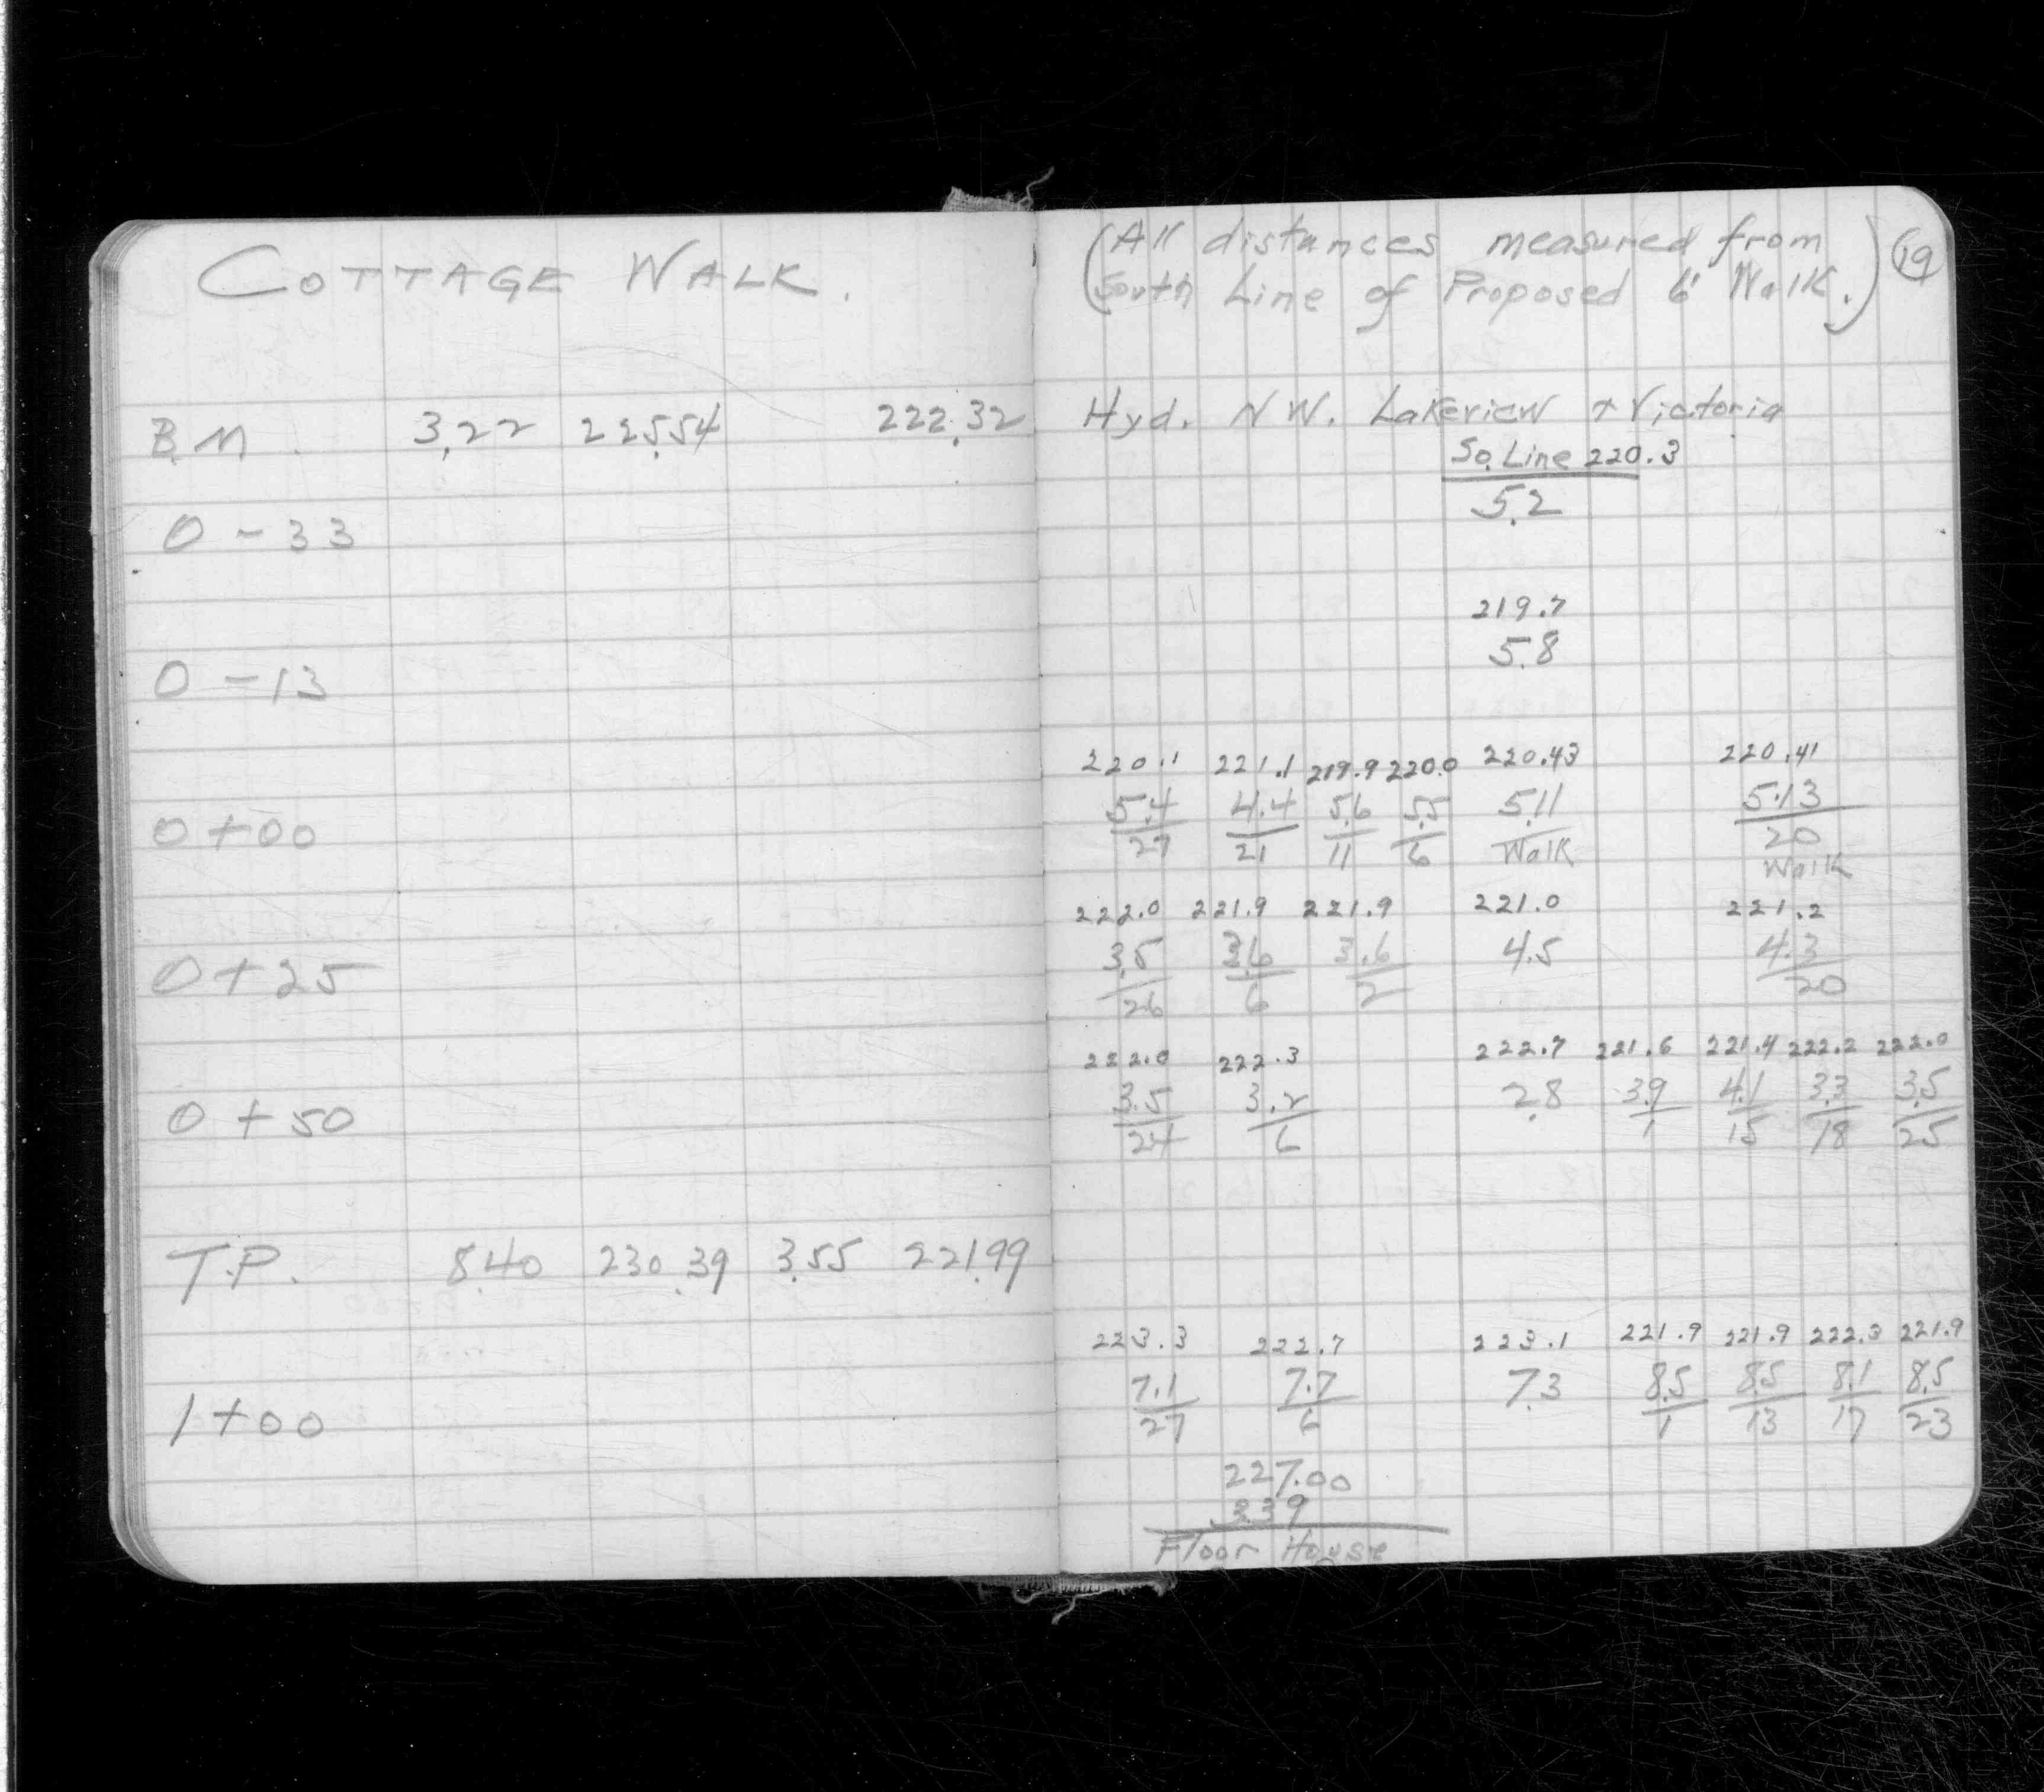 COTTAGE WALK.
B.M. 3.22 225.54 222.32
0 - 33
0 - 13
0 + 00
0 + 25
0 + 50
T.P. 8.40 230.39 3.55 221.99
1 + 00
(All distances measured from
South Line of Proposed 6' Walk.) 19
Hyd. N W. Lakeview + Victoria
So. Line 220.3
5.2
219.7
5.8
220.1 221.1 219.9 220.0 220.43 220.41
5.4 4.4 5.6 5.5 5.11 5.13
27 21 11 6 Walk 20
Walk
222.0 221.9 221.9 221.0 221.2
3.5 3.6 3.6 4.5 4.3
26 6 2 20
222.0 222.3 222.7 221.6 221.4 222.2 222.0
3.5 3.2 2.8 3.9 4.1 3.3 3.5
24 6 1 15 18 25
223.3 222.7 223.1 221.9 221.9 222.3 221.9
7.1 7.7 7.3 8.5 8.5 8.1 8.5
27 6 1 13 17 23
227.00
3.39
Floor House